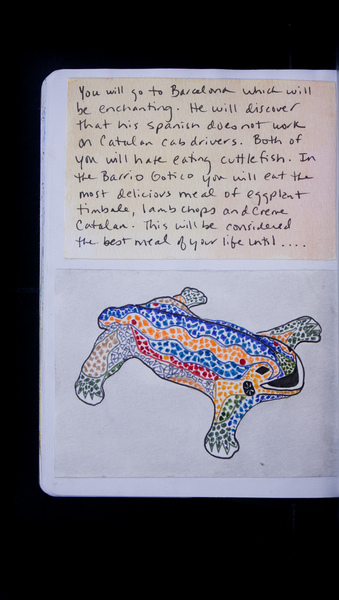 You will go to Barcelona which will
be enchanting. He will discover
that his spanish does not work
on Catalan cab drivers. Both of
you will hate eating cuttlefish. In
the Barrio Gotico you will eat the
most delicious meal of eggplant
timbale, lamb chops and Creme
Catalan. This will be considered
the best meal of your life until ....